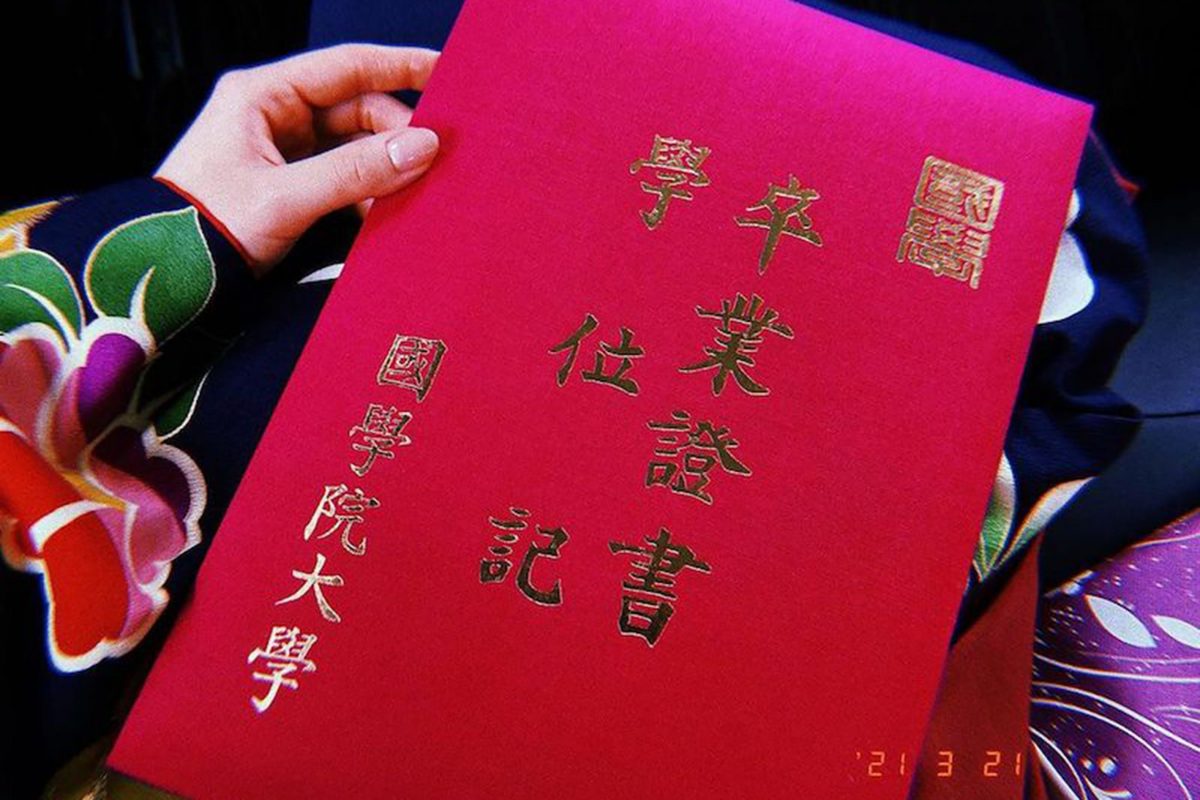 國學
卒業證書
學位記
國學院大學
'21 3 21